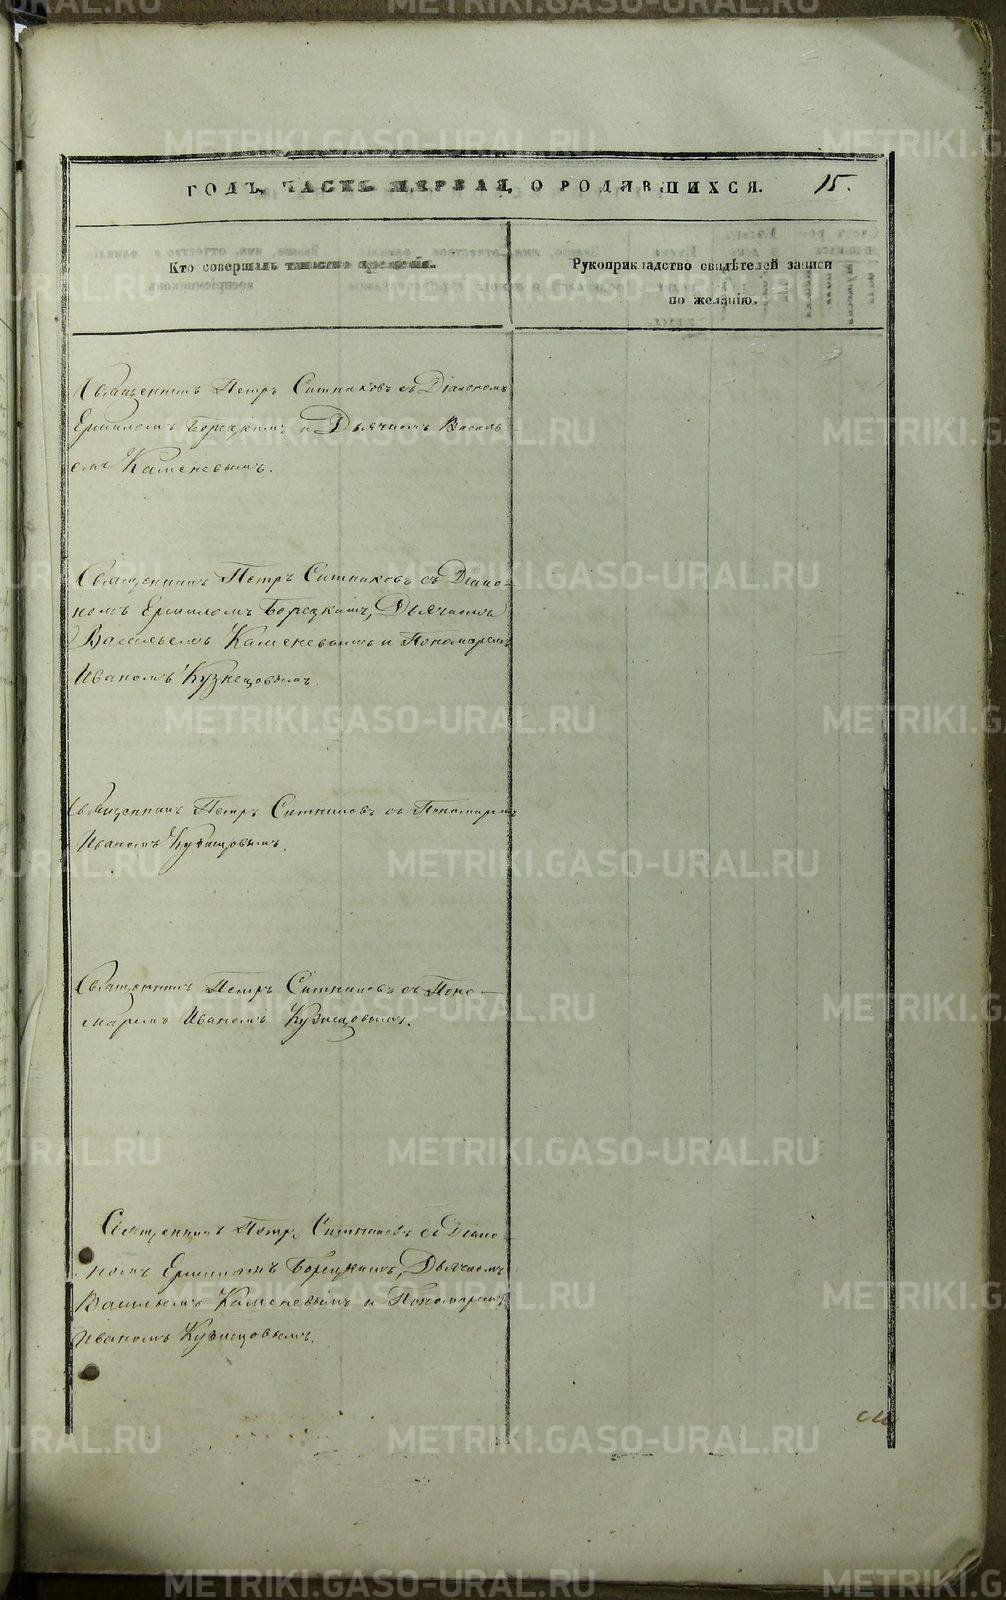 ГОДЪ, ЧАСТЬ ПЕРВАЯ, О РОДИВШИХСЯ. 15.
Кто совершалъ таинство крещенія.
Рукоприкладство свидѣтелей записи
по желанію.
Священникъ Петръ Ситниковъ съ Діакономъ
Ермиломъ Борецкимъ и Дьячкомъ Василь
емъ Каменевымъ.
Священникъ Петръ Ситниковъ съ Діако-
номъ Ермиломъ Борецкимъ, Дьячкомъ
Васильемъ Каменевымъ и Пономаремъ
Иваномъ Кузнецовымъ.
Священникъ Петръ Ситниковъ съ Пономаремъ
Иваномъ Кузнецовымъ.
Священникъ Петръ Ситниковъ съ Поно-
маремъ Иваномъ Кузнецовымъ.
Священникъ Петръ Ситниковъ съ Діако-
номъ Ермиломъ Борецкимъ, Дьячкомъ
Васильемъ Каменевымъ и Пономаремъ
Иваномъ Кузнецовымъ.
METRIKI.GASO-URAL.RU